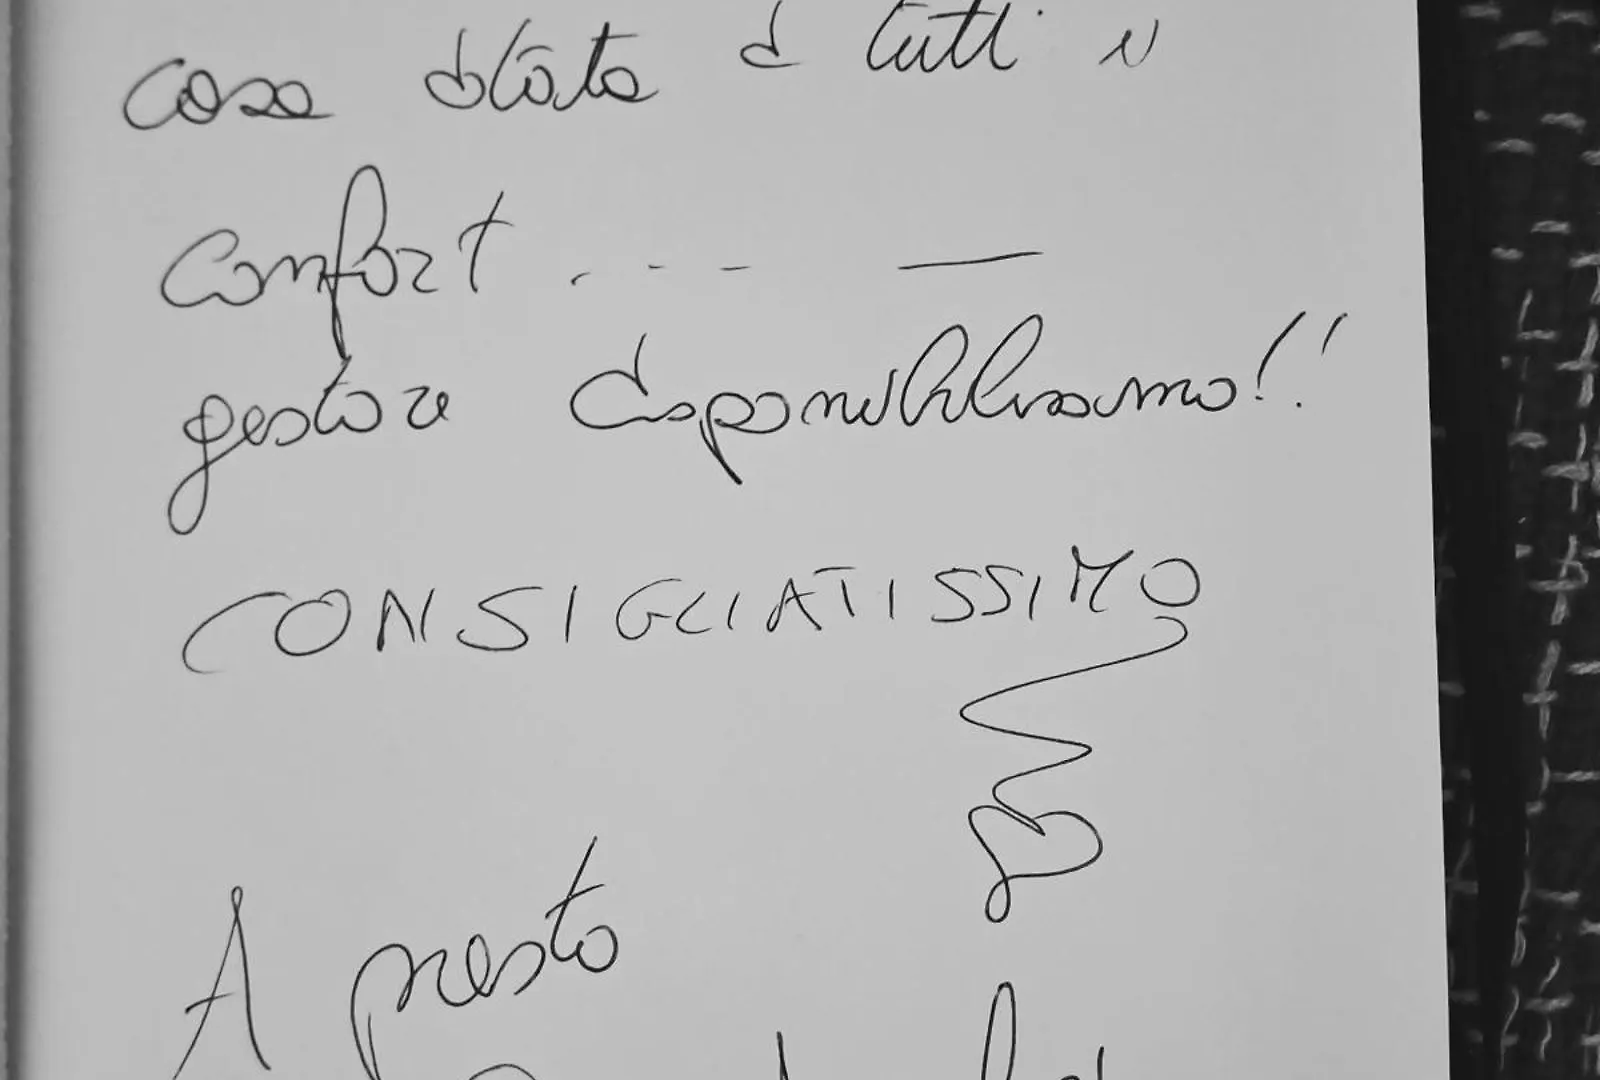 casa dotata di tutti i
confort . . . —
gestore disponibilissimo!!
CONSIGLIATISSIMO
A presto